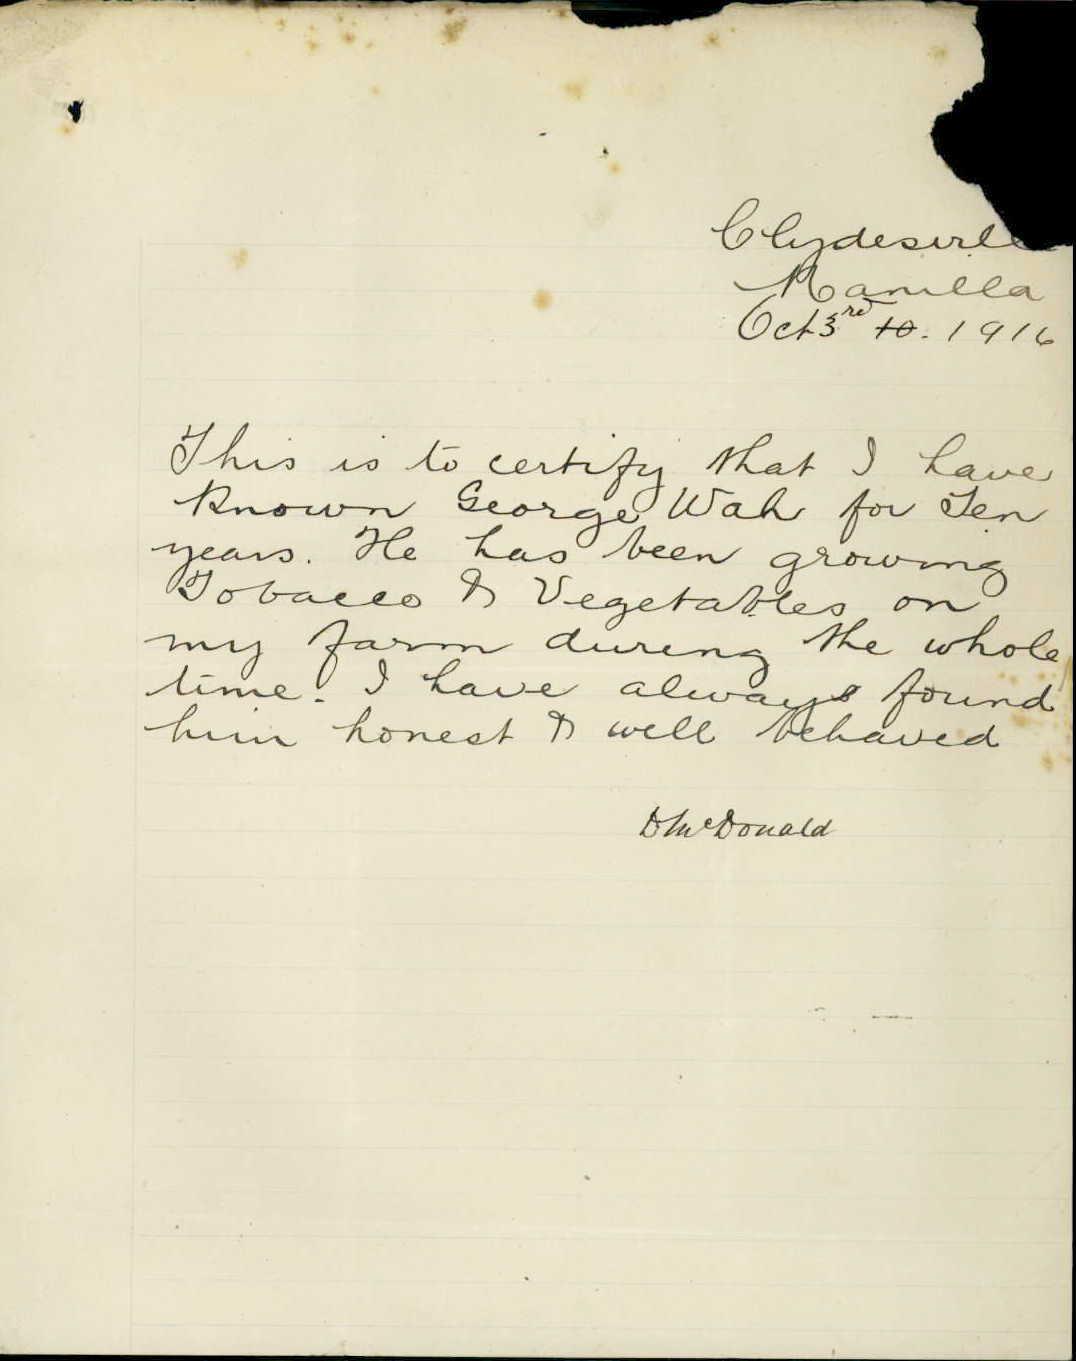 Clydesville
Manilla
Oct 3rd 10. 1916
This is to certify that I have
known George Wah for Ten
years. He has been growing
Tobacco & Vegetables on
my farm during the whole
time. I have always found
him honest & well behaved
D McDonald